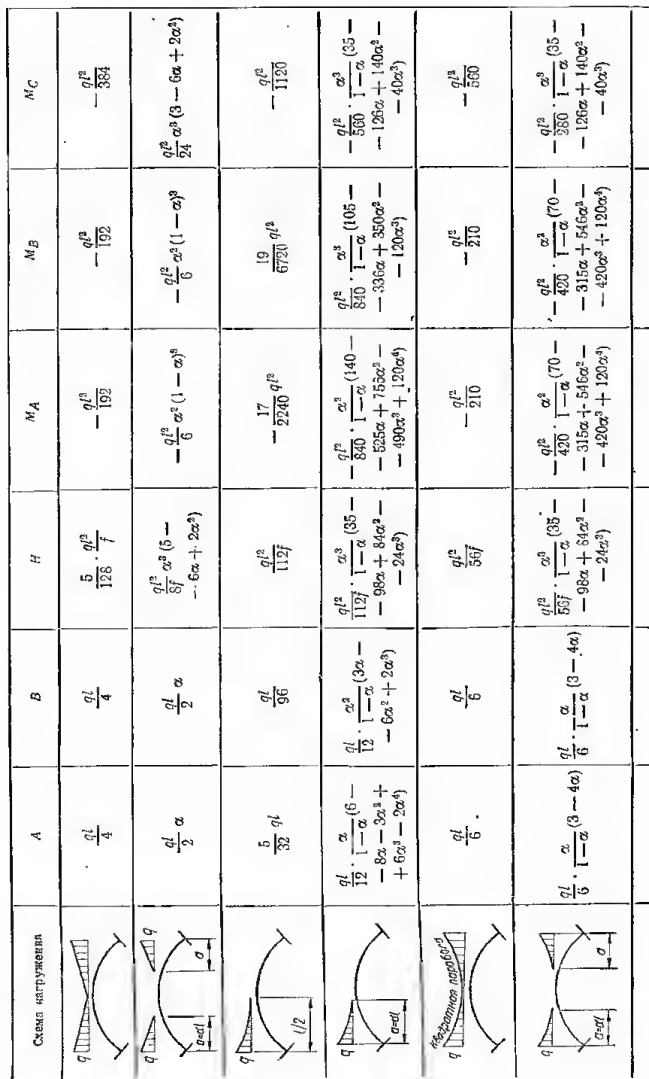 Схема нагружения | A | B | H | M_A | M_B | M_C
q | ql/4 | ql/4 | 5/128 · ql²/f | − ql²/192 | − ql²/192 | − ql²/384
q q a=αl a | ql/2 α | ql/2 α | ql²/8f α³ (5 −
− 6α + 2α²) | − ql²/6 α² (1 − α)³ | − ql²/6 α² (1 − α)³ | ql²/24 α³ (3 − 6α + 2α²)
q l/2 | 5/32 ql | ql/96 | ql²/112f | − 17/2240 ql² | 19/6720 ql² | − ql²/1120
q a=αl | ql/12 · α/1−α (6 −
− 8α − 3α² +
+ 6α³ − 2α⁴) | ql/12 · α²/1−α (3α −
− 6α² + 2α³) | ql²/112f · α³/1−α (35 −
− 98α + 84α² −
− 24α³) | − ql²/840 · α²/1−α (140 −
− 525α + 756α² −
− 490α³ + 120α⁴) | ql²/840 · α³/1−α (105 −
− 336α + 350α² −
− 120α³) | − ql²/560 · α³/1−α (35 −
− 126α + 140α² −
− 40α³)
q Квадратная парабола | ql/6 | ql/6 | ql²/56f | − ql²/210 | − ql²/210 | − ql²/560
q a=αl a | ql/6 · α/1−α (3 − 4α) | ql/6 · α/1−α (3 − 4α) | ql²/56f · α³/1−α (35 −
− 98α + 64α² −
− 24α³) | − ql²/420 · α²/1−α (70 −
− 315α + 546α² −
− 420α³ + 120α⁴) | − ql²/420 · α²/1−α (70 −
− 315α + 546α² −
− 420α³ + 120α⁴) | − ql²/280 · α³/1−α (35 −
− 126α + 140α² −
− 40α³)